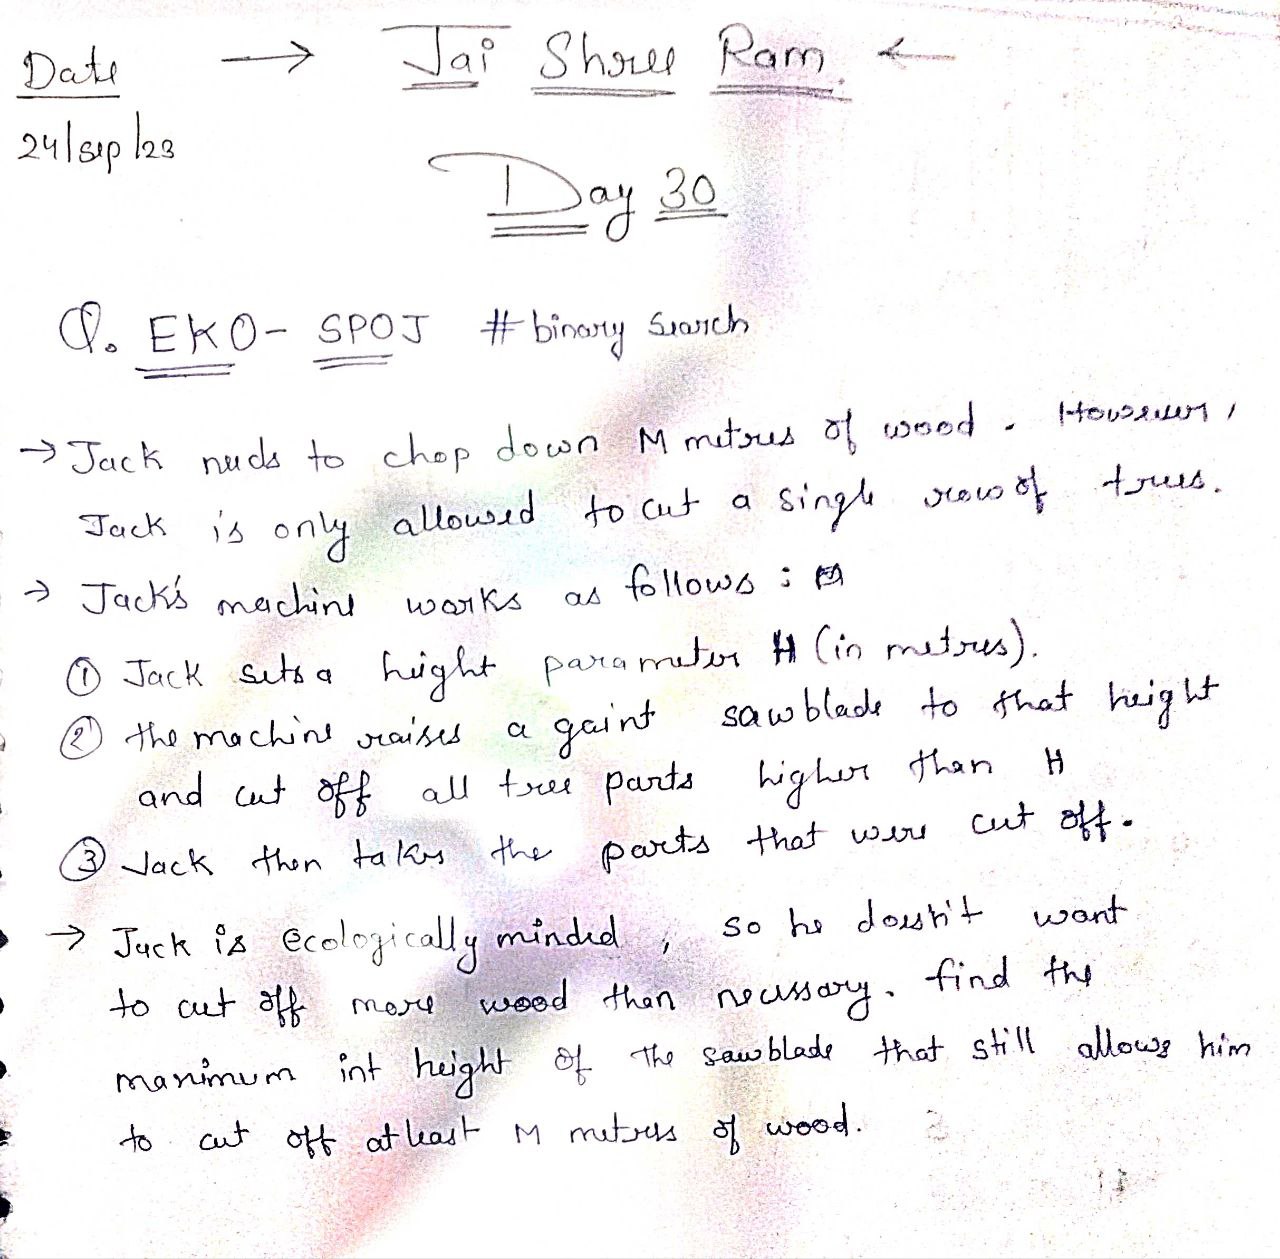 Date → Jai Shree Ram. ←
24/sep/23
Day 30
Q. EKO- SPOJ # binary search
→ Jack needs to chop down M metres of wood. However,
Jack is only allowed to cut a single row of trees.
→ Jack's machine works as follows :
① Jack sets a height parameter H (in metres).
② the machine raises a gaint sawblade to that height
and cut off all tree parts higher than H
③ Jack then takes the parts that were cut off.
→ Jack is ecologically minded, so he doesn't want
to cut off more wood than necessary. find the
maximum int height of the sawblade that still allows him
to cut off atleast M metres of wood.